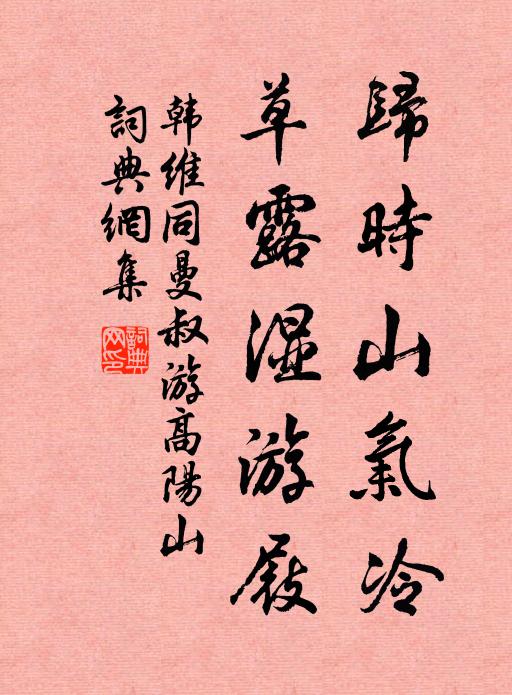 歸時山氣冷
草露湿游屐
韩維同曼叔游高陽山
詞典網集
詞典網印